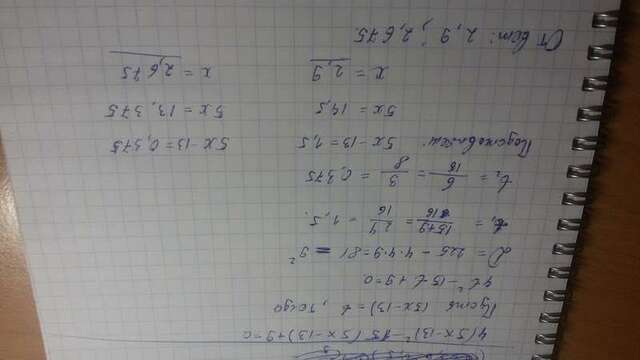 4(5x-13)² - 15(5x-13)+9=0
Пусть (5x-13)=t, тогда
4t² - 15t + 9 = 0
D = 225 - 4·4·9 = 81 = 9²
t₁ = (15+9)/16 = 24/16 = 1,5.
t₂ = 6/16 = 3/8 = 0,375
Подставляем: 5x-13=1,5 5x-13=0,375
5x = 14,5 5x = 13,375
x = 2,9 x = 2,675
Ответ: 2,9; 2,675.